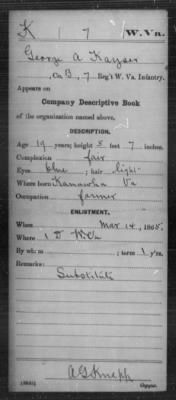 K | 7 | W. Va.
George A Kayser
, Co. B, 7 Reg't W. Va. Infantry.
Appears on
Company Descriptive Book
of the organization named above.
DESCRIPTION.
Age 19 years; height 5 feet 7 inches.
Complexion fair
Eyes blue; hair light
Where born Kanawha Va
Occupation farmer
ENLISTMENT.
When Mar 14, 1865.
Where 1 D W.Va
By whom ; term 1 y'rs.
Remarks:
Substitute
A G Knepp
Copyist.